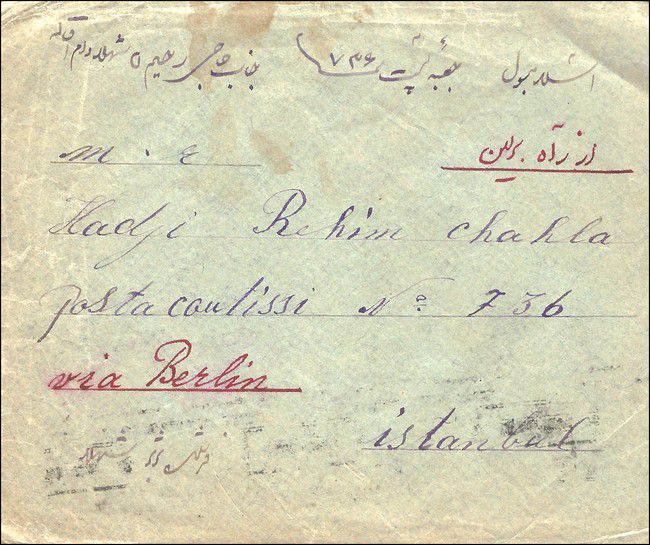 اسلامبول جعبه پست ۷۳۶ جناب حاجی رحیم
از راه برلین
m. e
Hadji Rehim chahla
posta coutissi Nº 736
via Berlin
istanbul